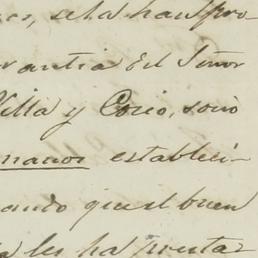 se la han pro-
rantia del Señor
Villa y Cocio, socio
manos estableci-
ando que el buen
les ha prestar